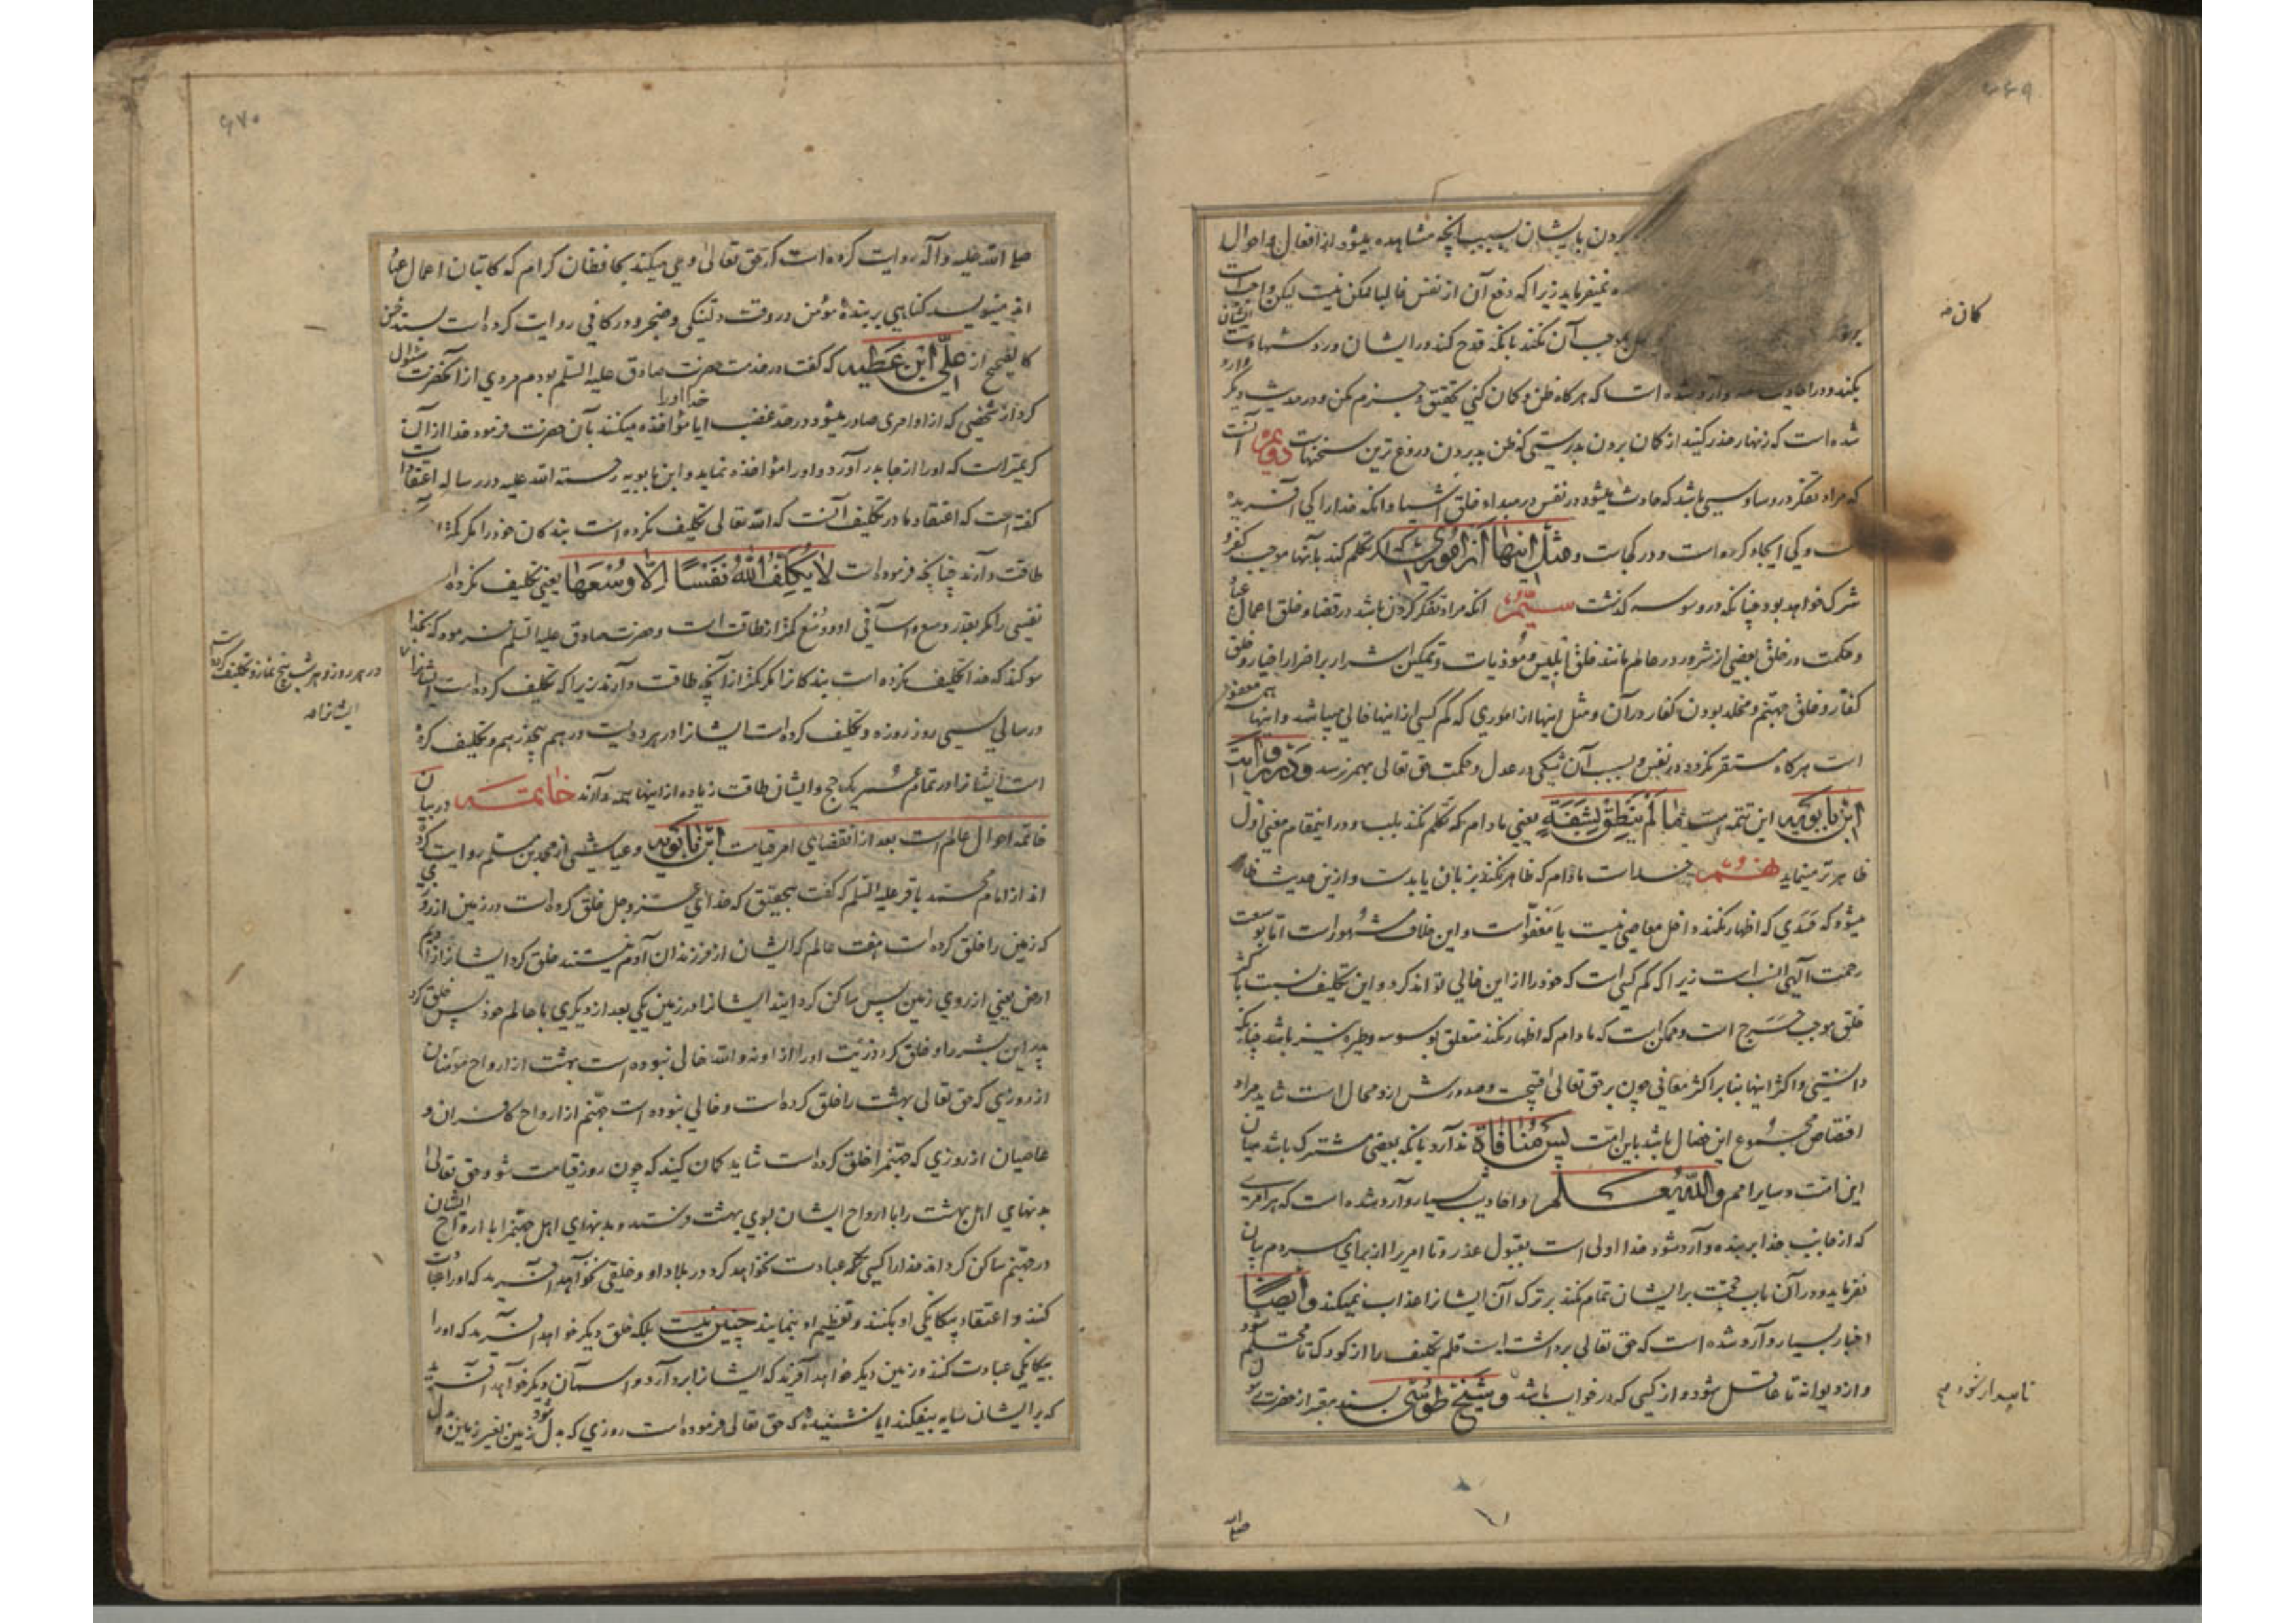 ۶۶۹
بردن بایشان بسبب آنچه مشاهده میشود از افعال و احوال
نمیفرماید زیرا که دفع آن از نفس غالبا ممکن نیست لیکن واجبست
بموجب آن نکند بانکه قدح کند در ایشان و رد شهادت ایشان
بکند و در احادیث وارد شده است که هر گاه ظن و کمان کنی تحقیق و جزم مکن و در حدیث دیگر وارد
شده است که زنهار حذر کنید از کمان بردن بدرستی که ظن بد بردن دروغ ترین سخنهاست دویم آنست
که مراد تفکر در وساوسی باشد که حادث میشود در نفس در مبداء خلق اشیا و انکه خدا را کی آفریده
است و کی ایجاد کرده است و در کجاست و مثل اینها از اموری که اکر تکلم کند بآنها موجب کفر و
شرک خواهد بود چنانکه در وسوسه کذشت سیّم انکه مراد تفکر کردن باشد در قضا و خلق اعمال عباد
و حکمت در خلق بعضی از شرور در عالم مانند خلق ابلیس و موذیات و تمکین اشرار بر اضرار اخیار و خلق
کفار و خلق جهنم و مخلد بودن کفار در آن و مثل اینها از اموری که کم کسی از اینها خالی میباشد و اینها همه معفو
است هرگاه مستقر نکردد در نفس و بسبب آن شکی در عدل و حکمت حق تعالی بهم نرسد و در روایت
ابن بابویه این تتمه است ما لم ینطق بشفة یعنی مادام که تکلم نکند بلب و در اینمقام معنی اول
ظاهرتر مینماید نهم حسد است مادام که ظاهر نکند بزبان یا بدست و ازین حدیث ظاهر
میشود که حسدی که اظهار نکند داخل معاصی نیست یا معفو است و این خلاف مشهور است اما بوسعت
رحمت الهی انسب است زیرا که کم کسی است که خود را از این خالی تواند کرد و این تکلیف نسبت باکثر
خلق موجب حرج است و ممکن است که مادام که اظهار نکند متعلق بوسوسه و طیره نیز باشد چنانکه
دانستی و اکثر اینها بنا بر اکثر معانی چون بر حق تعالی قبیحست و صدورش ازو محال است شاید مراد
اختصاص مجموع این خصال باشد باین امّت پس منافاة ندارد بانکه بعضی مشترک باشد میان
این امّت و سایر امم و الله یعلم و احادیث بسیار وارد شده است که هر امری
که از جانب خدا بر بنده وارد شود خدا اولی است بقبول عذر و تا امریرا از برای مردم بیان
نفرماید و در آن باب حجت بر ایشان تمام نکند بر ترک آن ایشانرا عذاب نمیکند و ایضاً
اخبار بسیار وارد شده است که حق تعالی برداشته است قلم تکلیف را از کودک تا محتلم شود
و از دیوانه تا عاقل شود و از کسی که در خواب باشد و شیخ طوسی بسند معتبر از حضرت رسول
کمان صح
تا بیدار شود صح
صلی الله
۶۷۰
صلی الله علیه و آله روایت کرده است که حق تعالی وحی میکند بحافظان کرام که کاتبان اعمال عباد
اند منویسید کناهی بر بندهٔ مؤمن در وقت دلتنکی و ضجر و در کافی روایت کرده است بسند حسن
کالصحیح از علی ابن عطیه که گفت در خدمت حضرت صادق علیه السلم بودم مردی از آنحضرت سئوال
کرد از شخصی که از او امری صادر میشود در حد غضب ایا مؤاخذه میکند خدا او را بآن حضرت فرمود خدا از آن
کریمتر است که او را از جا بدر آورد و او را مؤاخذه نماید و ابن بابویه رحمة الله علیه در رساله اعتقادات
کفته است که اعتقاد ما در تکلیف آنست که الله تعالی تکلیف نکرده است بندکان خود را مکر کمتر از
طاقت دارند چنانچه فرموده است لا یکلف الله نفسا الا وسعها یعنی تکلیف نکرده
نفسی را مکر بقدر وسع و آسانی او و وسع کمتر از طاقت است و حضرت صادق علیه السلم فرمود که بخدا
سوکند که خدا تکلیف نکرده است بندکانرا مکر کمتر از آنچه طاقت دارند زیرا که تکلیف کرده است ایشانرا
در سالی سی روز روزه و تکلیف کرده است ایشانرا در هر دویست درهم پنج درهم و تکلیف کرده
است ایشانرا در تمام عمر یک حج و ایشان طاقت زیاده از اینها همه دارند خاتمه در بیان
خاتمه احوال عالم است بعد از انقضای امر قیامت ابن بابویه و عیاشی از محمد بن مسلم روایت کرده
اند از امام محمد باقر علیه السلم که گفت بتحقیق که خدای عزوجل خلق کرده است در زمین از روزی
که زمین را خلق کرده است هفت عالم که ایشان از فرزندان آدم نیستند خلق کرد ایشانرا از ادیم
ارض یعنی از روی زمین پس ساکن کردانید ایشانرا در زمین یکی بعد از دیکری با عالم خود پس خلق کرد
پدر این بشر را و خلق کرد ذریّت او را از او نه والله خالی نبوده است بهشت از ارواح مؤمنان
از روزی که حق تعالی بهشت را خلق کرده است و خالی نبوده است جهنم از ارواح کافران و
عاصیان از روزی که جهنم را خلق کرده است شاید کمان کنید که چون روز قیامت شود حق تعالی
بدنهای اهل بهشت را با ارواح ایشان بسوی بهشت فرستد و بدنهای اهل جهنم را با ارواح ایشان
در جهنم ساکن کرداند خدا را کسی عبادت نخواهد کرد در بلاد او و خلقی نخواهد آفرید که او را عبادت
کنند و اعتقاد بیکانکی او بکنند و تعظیم او بنمایند چنین نیست بلکه خلق دیگر خواهد آفرید که او را
بیکانکی عبادت کنند و زمین دیگر خواهد آفرید که ایشانرا بردارد و آسمان دیگر خواهد آفرید
که بر ایشان سایه بیفکند ایا نشنیدهٔ که حق تعالی فرموده است روزی که بدل شود زمین بغیر زمین و
در هر روز و هر شب پنج نماز و تکلیف کرده است
ایشانرا صح